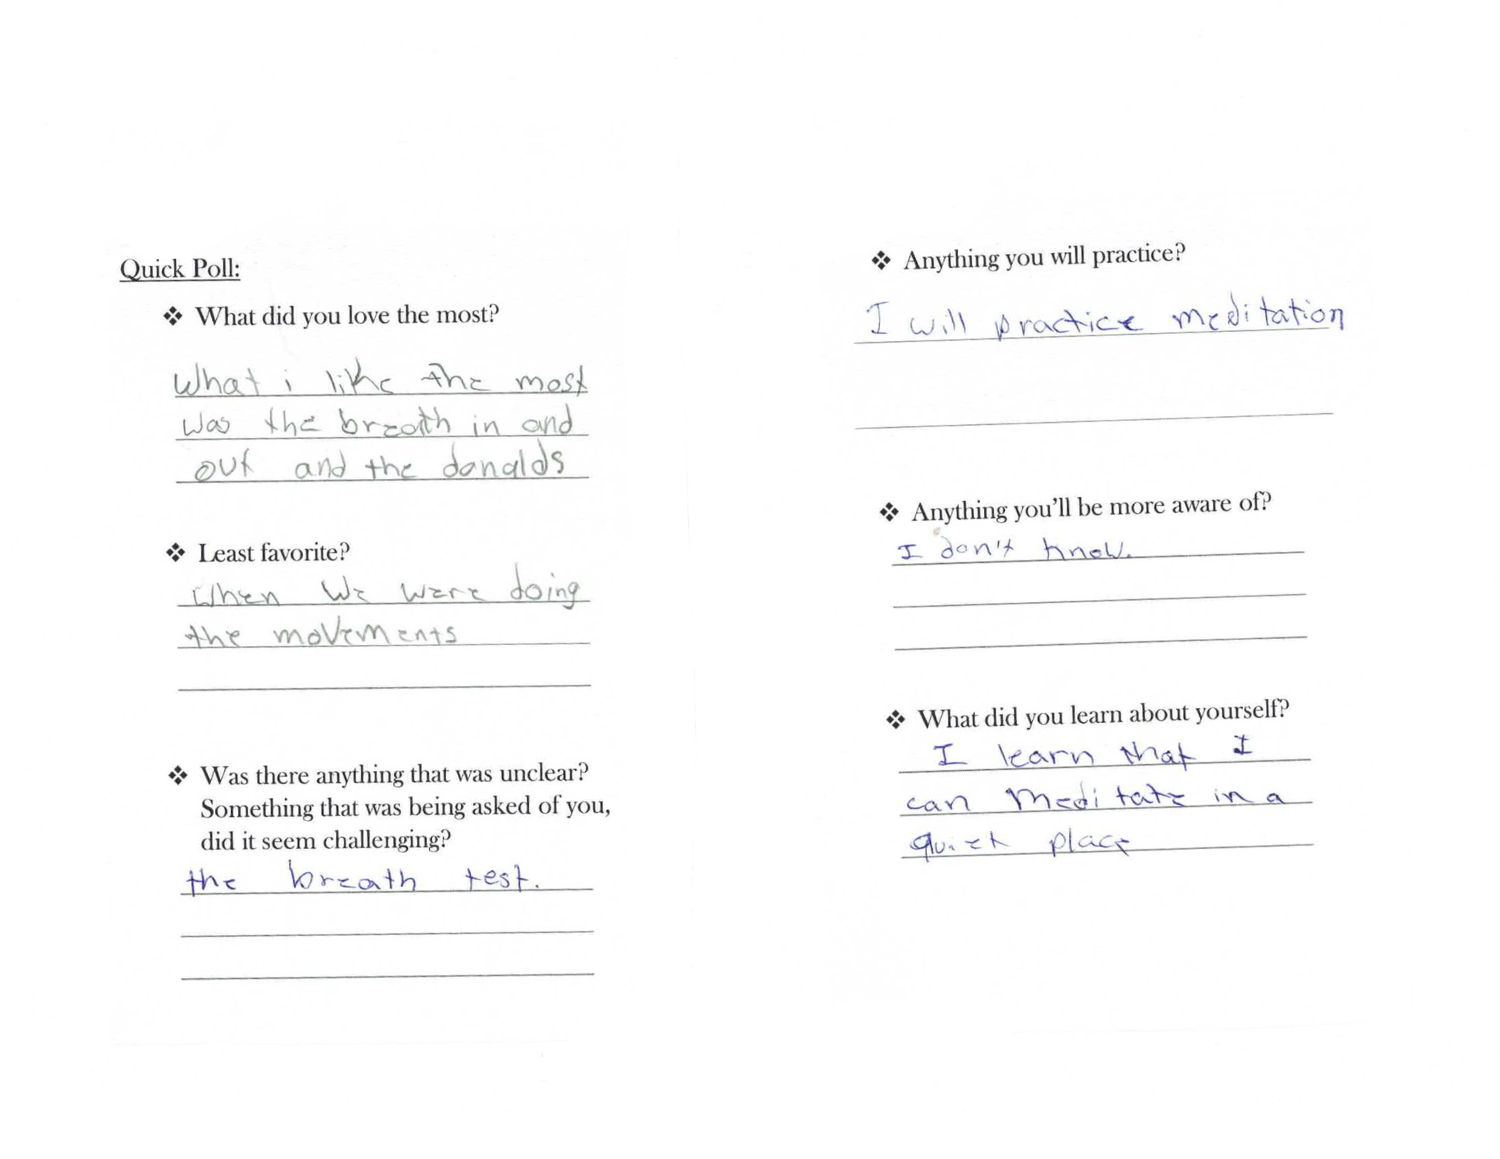 Quick Poll:
❖ What did you love the most?
What i like the most
was the breath in and
out and the donalds
❖ Least favorite?
When we were doing
the movements
❖ Was there anything that was unclear?
Something that was being asked of you,
did it seem challenging?
the breath test.
❖ Anything you will practice?
I will practice meditation
❖ Anything you'll be more aware of?
I don't know.
❖ What did you learn about yourself?
I learn that I
can meditate in a
quiet place